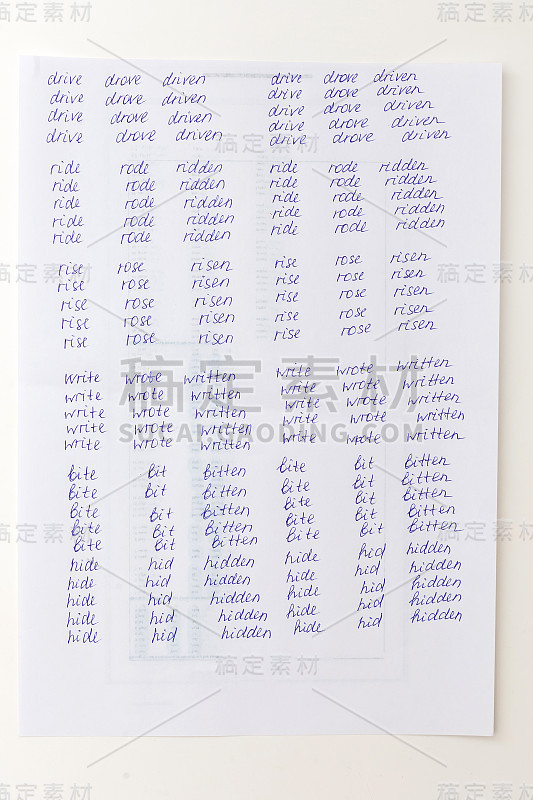 稿定素材 稿定素材
drive drove driven drive drove driven
drive drove driven drive drove driven
drive drove driven drive drove driven
drive drove driven drive drove driven
drive drove driven
稿定素材
ride rode ridden ride rode ridden
ride rode ridden ride rode ridden
ride rode ridden ride rode ridden
ride rode ridden ride rode ridden
ride rode ridden ride rode ridden
rise rose risen rise rose risen
稿定素材 稿定素材
rise rose risen rise rose risen
rise rose risen rise rose risen
rise rose risen rise rose risen
rise rose risen rise rose risen
write wrote written write wrote written
稿定素材
write wrote written write wrote written
write wrote written write wrote written
write wrote written write wrote written
SUCAI.GAODING.COM
write wrote written write wrote written
bite bit bitten bite bit bitten
bite bit bitten bite bit bitten
bite bit bitten bite bit bitten
bite bit bitten bite bit bitten
稿定素材 稿定素材
bite bit bitten bite bit bitten
hide hid hidden hide hid hidden
hide hid hidden hide hid hidden
hide hid hidden hide hid hidden
hide hid hidden hide hid hidden
hide hid hidden hide hid hidden
稿定素材
稿定素材 稿定素材